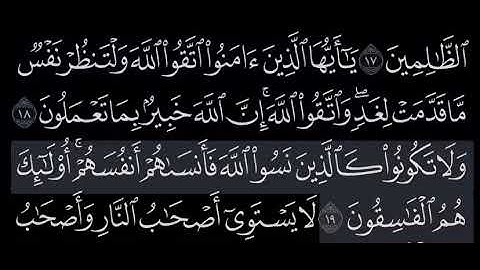 ٱلظَّـٰلِمِينَ ١٧ يَـٰٓأَيُّهَا ٱلَّذِينَ ءَامَنُوا۟ ٱتَّقُوا۟ ٱللَّهَ وَلْتَنظُرْ نَفْسٌ
مَّا قَدَّمَتْ لِغَدٍ ۖ وَٱتَّقُوا۟ ٱللَّهَ ۚ إِنَّ ٱللَّهَ خَبِيرٌۢ بِمَا تَعْمَلُونَ ١٨
وَلَا تَكُونُوا۟ كَٱلَّذِينَ نَسُوا۟ ٱللَّهَ فَأَنسَىٰهُمْ أَنفُسَهُمْ ۚ أُو۟لَـٰٓئِكَ
هُمُ ٱلْفَـٰسِقُونَ ١٩ لَا يَسْتَوِىٓ أَصْحَـٰبُ ٱلنَّارِ وَأَصْحَـٰبُ